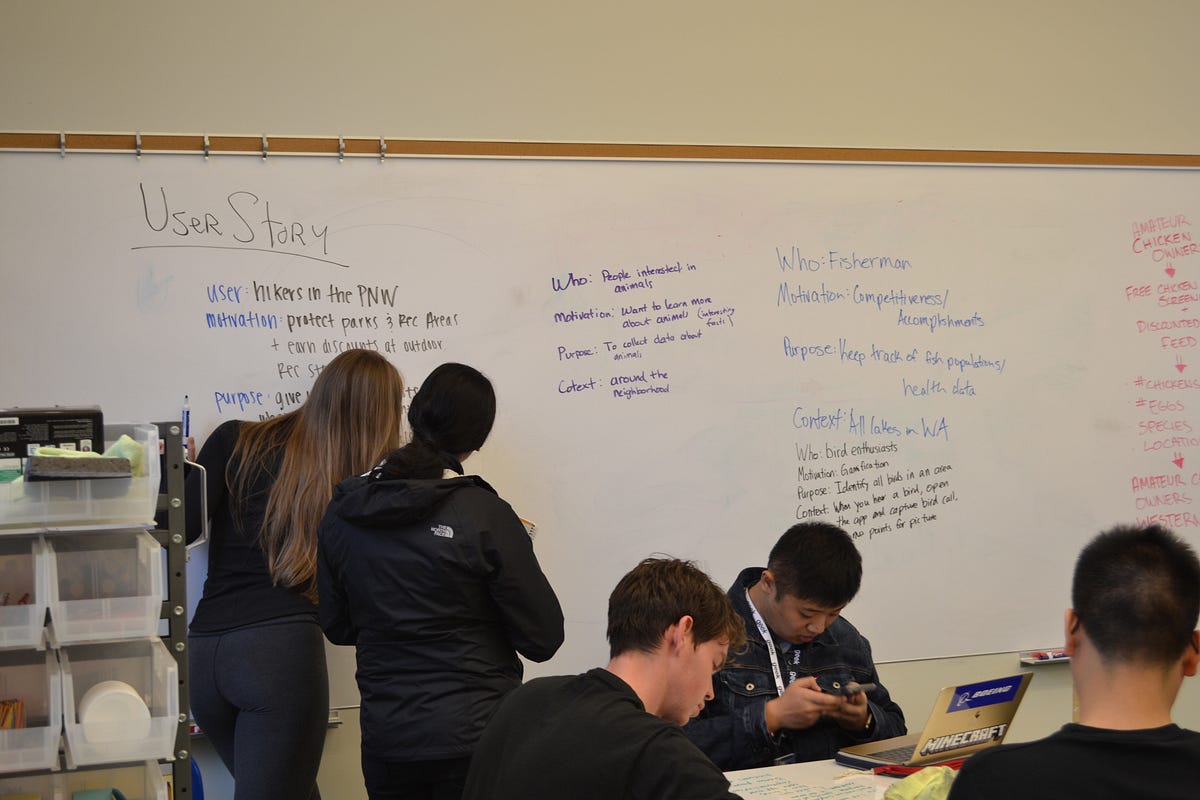 User Story
user: hikers in the PNW
motivation: protect parks & Rec Areas
+ earn discounts at outdoor
Rec
purpose: give
Who: People interested in
animals
Motivation: Want to learn more
about animals (interesting
facts)
Purpose: To collect data about
animals
Cotext: around the
neighborhood
Who: Fisherman
Motivation: Competitiveness/
Accomplishments
Purpose: Keep track of fish populations/
health data
Context: All lakes in WA
Who: bird enthusiasts
Motivation: Gamification
Purpose: Identify all birds in an area
Context: When you hear a bird, open
the app and capture bird call.
points for picture
AMATEUR
CHICKEN
OWNER
FREE CHICKEN
SCREEN
+
DISCOUNTED
FEED
#CHICKENS
#EGGS
SPECIES
LOCATION
AMATEUR
OWNERS
WESTERN
THE
NORTH
FACE
BOEING
MINECRAFT